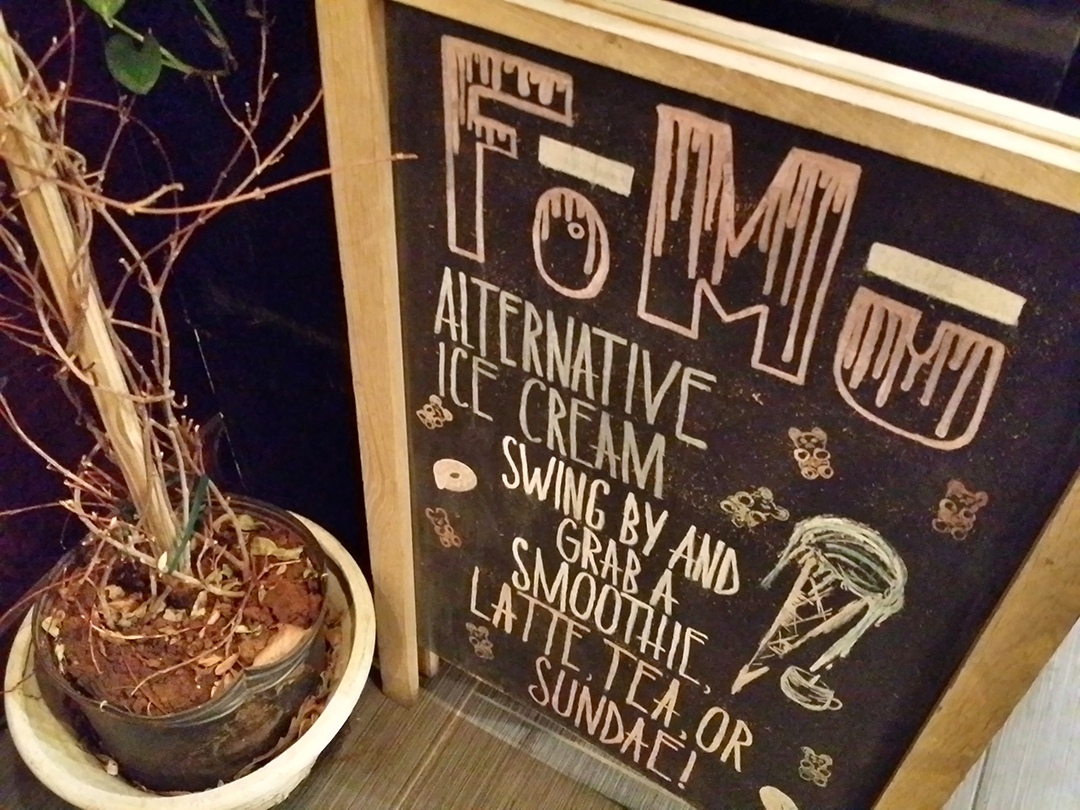 FōMū
ALTERNATIVE
ICE CREAM
SWING BY AND
GRAB A
SMOOTHIE,
LATTE, TEA, OR
SUNDAE!